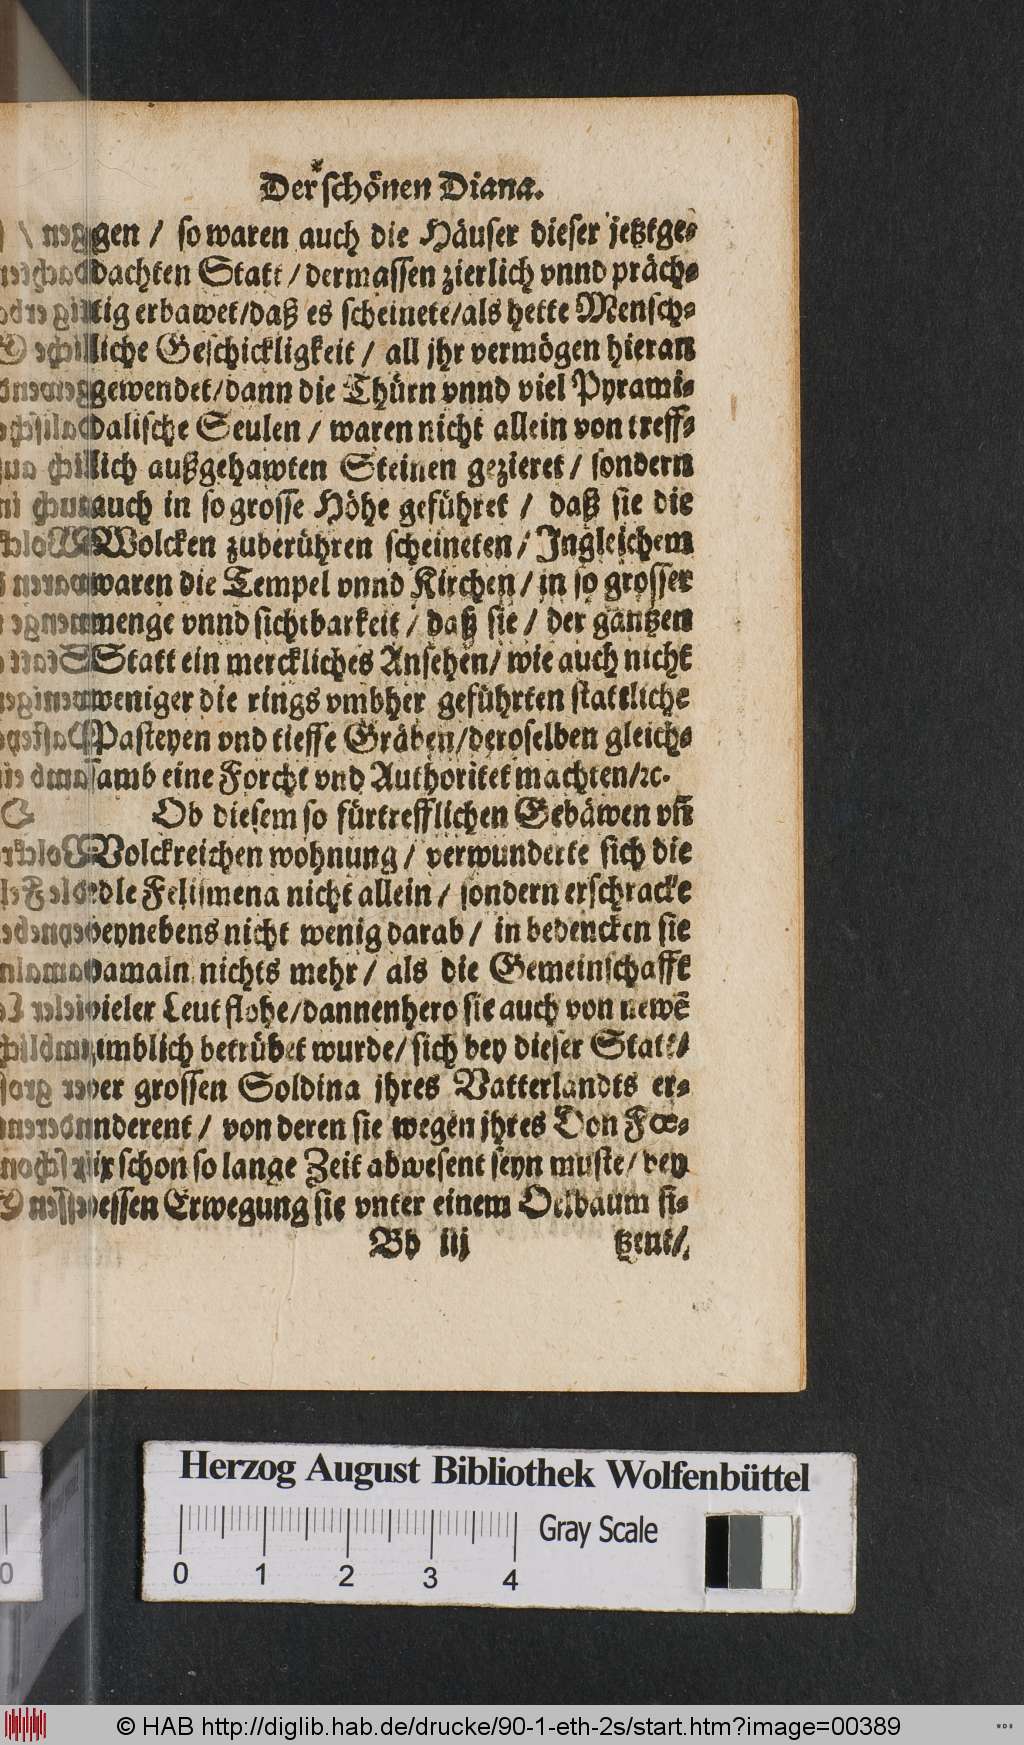 Der schönen Diana.
gen / so waren auch die Häuser dieser jetztge-
dachten Statt / dermassen zierlich vnnd präch-
tig erbawet / daß es scheinete / als hette Mensch-
liche Geschickligkeit / all jhr vermögen hieran
gewendet / dann die Thürn vnnd viel Pyrami-
dalische Seulen / waren nicht allein von treff-
lich außgehawten Steinen gezieret / sondern
auch in so grosse Höhe geführet / daß sie die
Wolcken zuberühren scheineten / Jngleichem
waren die Tempel vnnd Kirchen / in so grosser
menge vnnd sichtbarkeit / daß sie / der gantzen
Statt ein merckliches Ansehen / wie auch nicht
weniger die rings vmbher geführten stattliche
Pasteyen vnd tieffe Gräben / deroselben gleich-
samb eine Forcht vnd Authoritet machten / ꝛc.
Ob diesem so fürtrefflichen Gebäwen vñ
Volckreichen wohnung / verwunderte sich die
edle Felismena nicht allein / sondern erschracke
beynebens nicht wenig darab / in bedencken sie
damaln nichts mehr / als die Gemeinschafft
vieler Leut flohe / dannenhero sie auch von newē
zimblich betrübet wurde / sich bey dieser Statt /
der grossen Soldina jhres Vatterlandts er-
innderent / von deren sie wegen jhres Don Fœ-
lix schon so lange Zeit abwesent seyn muste / bey
dessen Erwegung sie vnter einem Oelbaum si-
Bb iij tzent /
Herzog August Bibliothek Wolfenbüttel
Gray Scale
0 1 2 3 4
© HAB http://diglib.hab.de/drucke/90-1-eth-2s/start.htm?image=00389